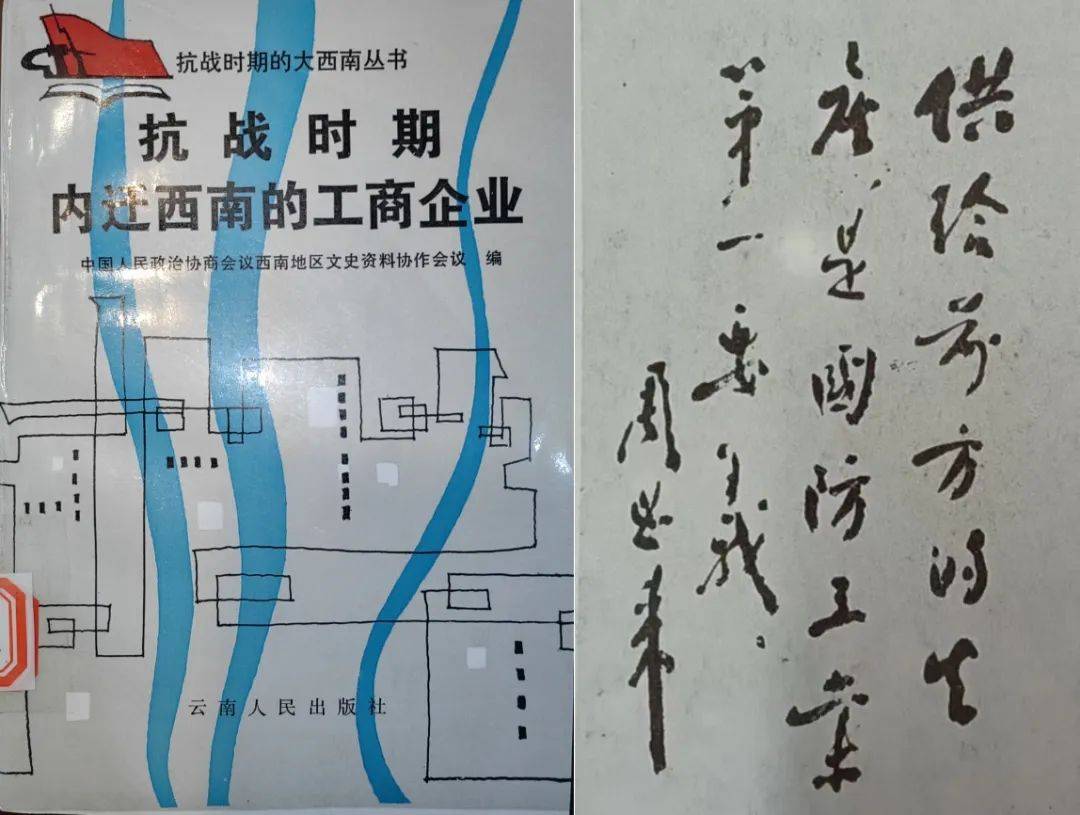 抗战时期的大西南丛书
抗战时期
内迁西南的工商企业
中国人民政治协商会议西南地区文史资料协作会议 编
云南人民出版社
供给前方的生
產,是國防工業
第一要義。
周恩来